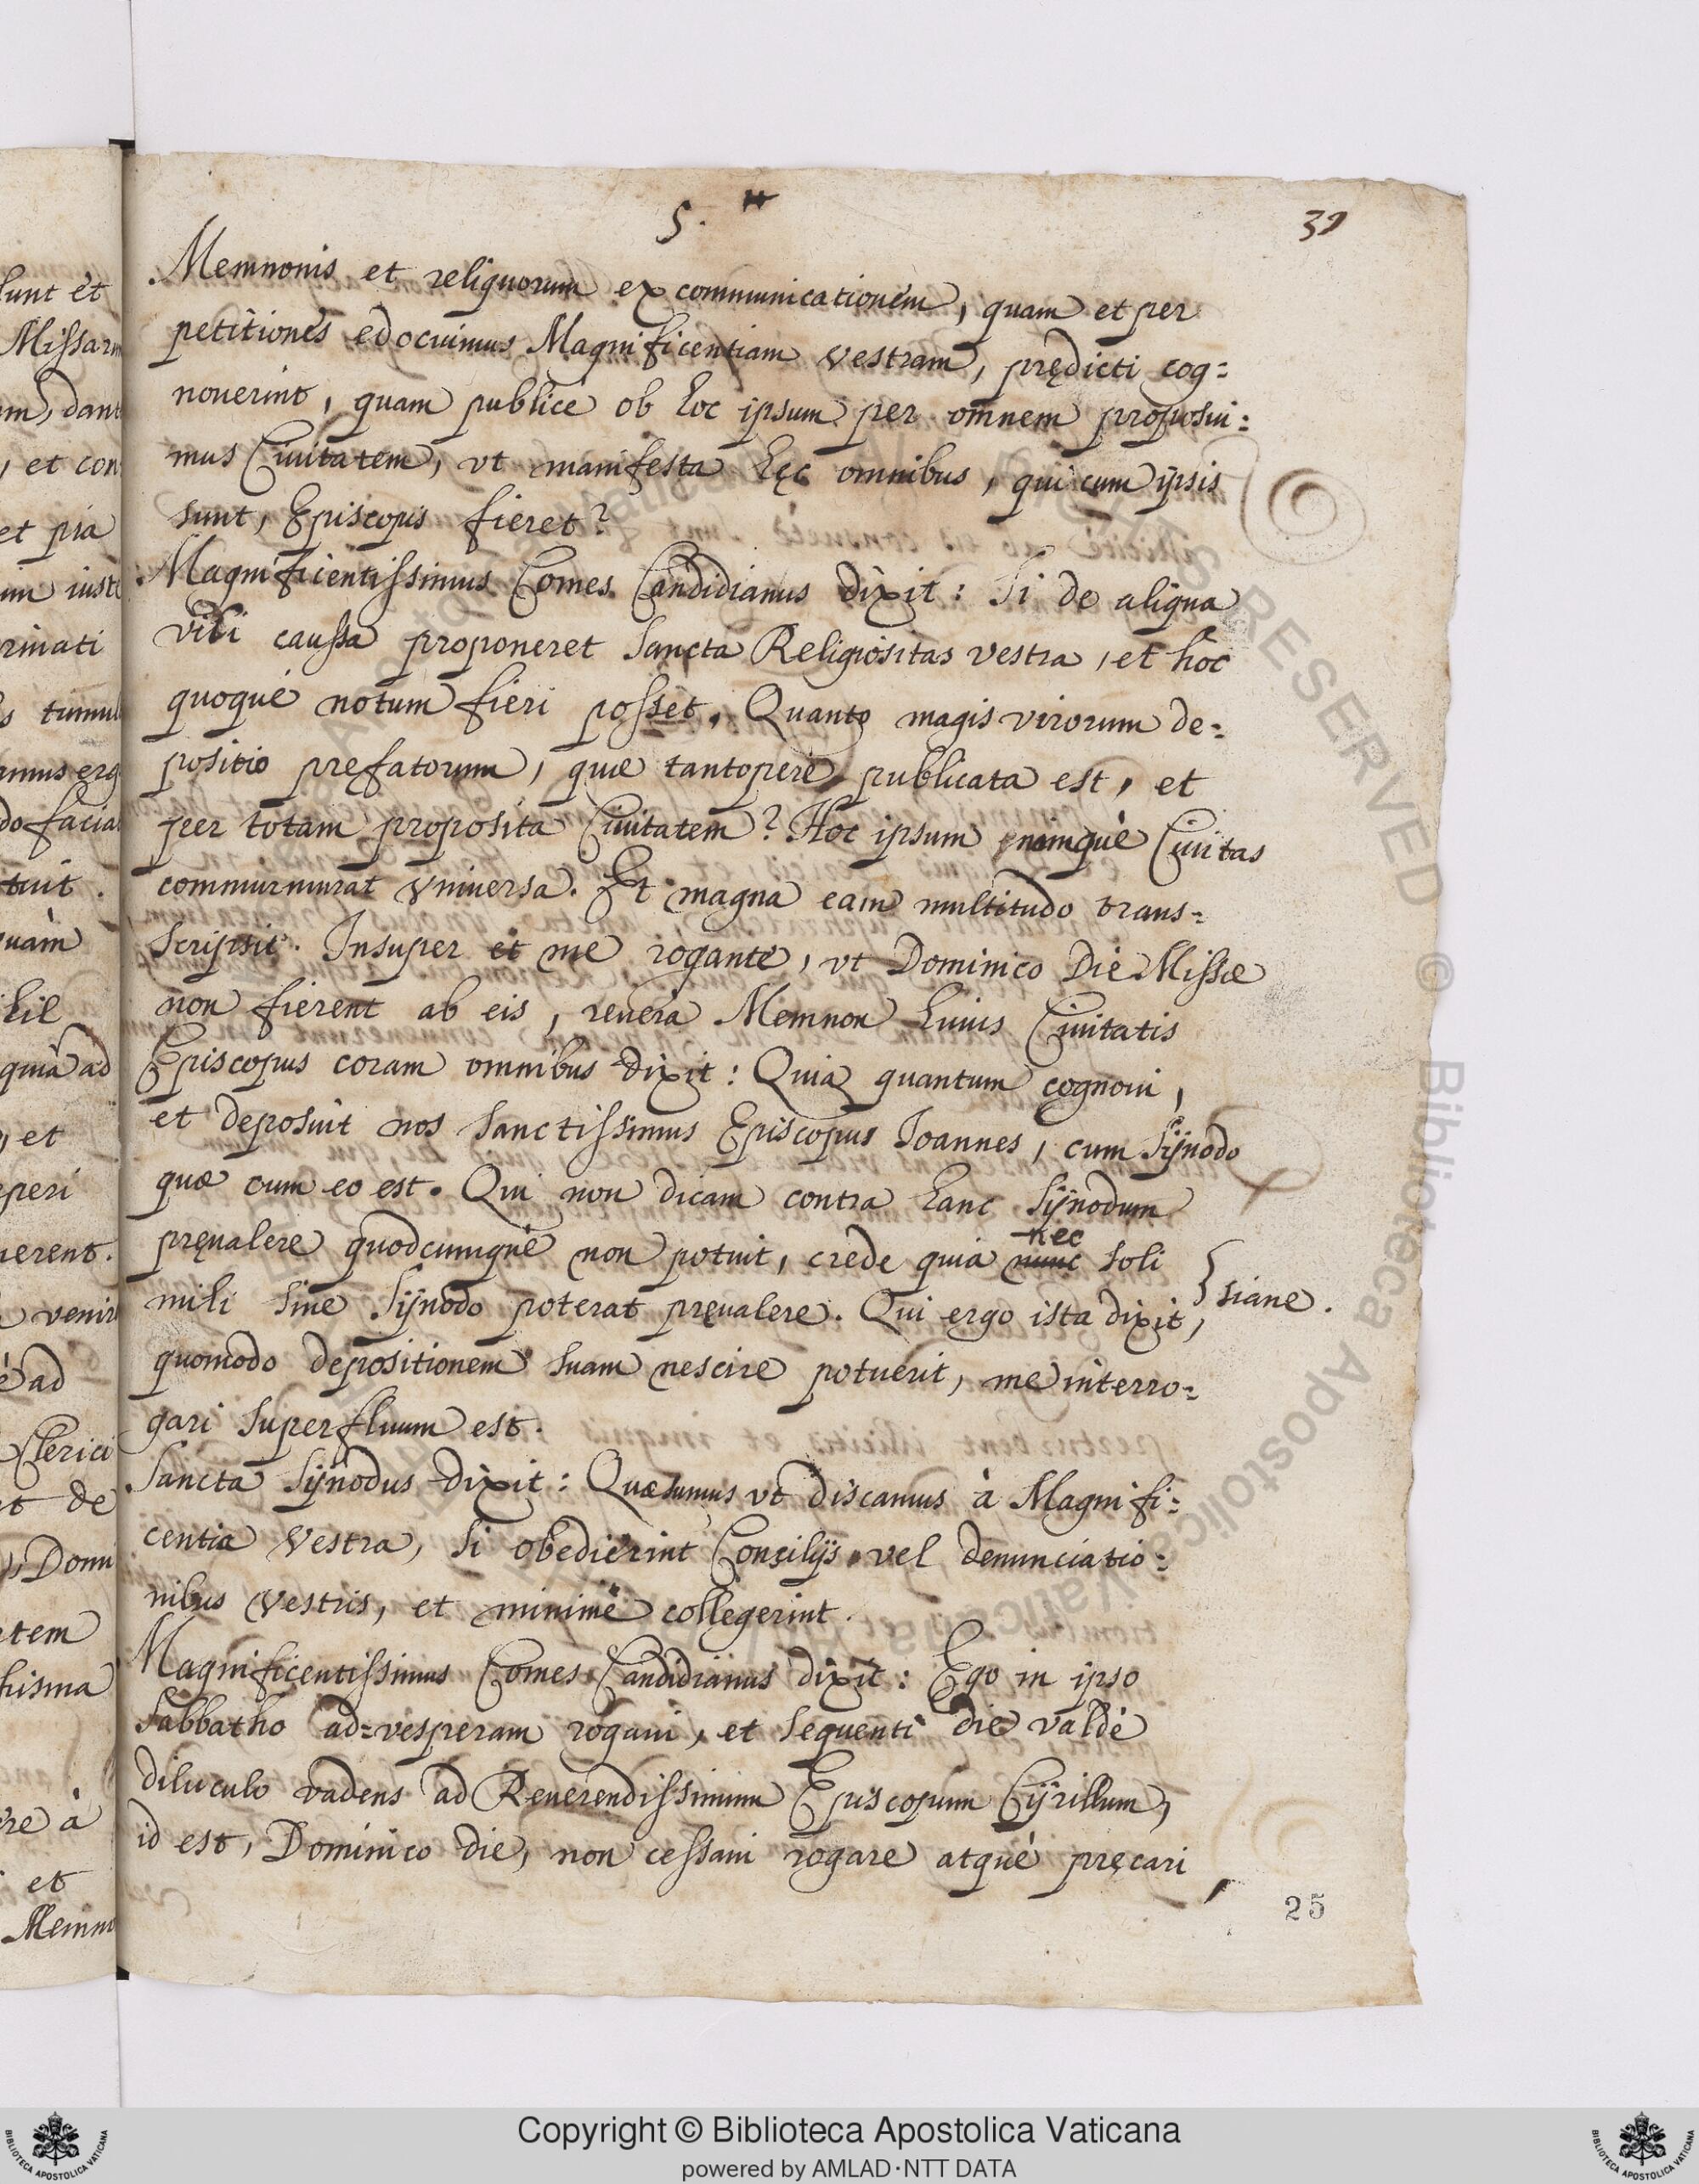 5.
39
Memnonis et reliquorum excommunicationem, quam et per
petitiones edocuimus Magnificentiam vestram, prędicti cog=
nouerint, quam publice ob hoc ipsum per omnem proposui=
mus Ciuitatem, vt manifesta hęc omnibus, qui cum ipsis
sunt, Episcopis fieret?
Magnificentissimus Comes Candidianus dixit: Si de aliqua
vili caussa proponeret Sancta Religiositas vestra, et hoc
quoque notum fieri posset. Quanto magis virorum de=
positio pręfatorum, quæ tantopere publicata est, et
per totam proposita Ciuitatem? Hoc ipsum Ciuitas
commurmurat vniuersa. Et magna eam multitudo trans=
scripsit. Insuper et me rogante, vt Dominico Die Missæ
non fierent ab eis, reuera Memnon huius Ciuitatis
Episcopus coram omnibus dixit: Quia quantum cognoui,
et deposuit nos Sanctissimus Episcopus Ioannes, cum Sÿnodo
quæ cum eo est. Qui non dicam contra hanc Sÿnodum
pręualere quodcumque non potuit, crede quia nunc nec soli
mihi sine Sÿnodo poterat pręualere. Qui ergo ista dixit,
} siane.
quomodo depositionem suam nescire potuerit, me interro=
gari superfluum est.
Sancta Sÿnodus dixit: Quæsumus vt discamus à Magnifi=
centia Vestra, Si obedierint Consilÿs vel denunciatio=
nibus Vestris, et minimè collegerint.
Magnificentissimus Comes Candidianus dixit: Ego in ipso
Sabbatho ad=vesperam rogaui, et sequenti die valdè
diluculo vadens ad Reuerendissimum Episcopum Cÿrillum,
id est, Dominico die, non cessaui rogare atque pręcari,
25
lunt et
Missarum
, dant
, et con
et pia
um iuste
rinati
s tumul
do facia
tuit.
quàm
hil
quia ad
, et
peri
uerent.
venir
è ad
Clerici
t de
, Domi
tem
hisma
re à
et
Memno
ALL RIGHTS RESERVED © Biblioteca Apostolica Vaticana
Copyright © Biblioteca Apostolica Vaticana
powered by AMLAD·NTT DATA
BIBLIOTECA APOSTOLICA VATICANA
BIBLIOTECA APOSTOLICA VATICANA